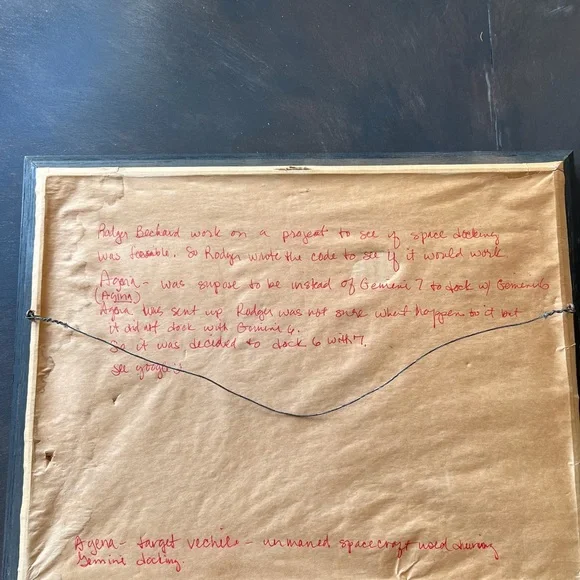 Rodger Bechard work on a project to see if space docking
was feasable. So Rodger wrote the code to see if it would work
Agena - was supose to be instead of Gemeni 7 to dock w/ Gemeni 6
(Agina)
Agena was sent up Rodger was not sure what happen to it but
it did not dock with Gemini 6.
So it was decided to dock 6 with 7.
see google
Agena - target vechile - unmaned spacecraft used during
Gemine docking.